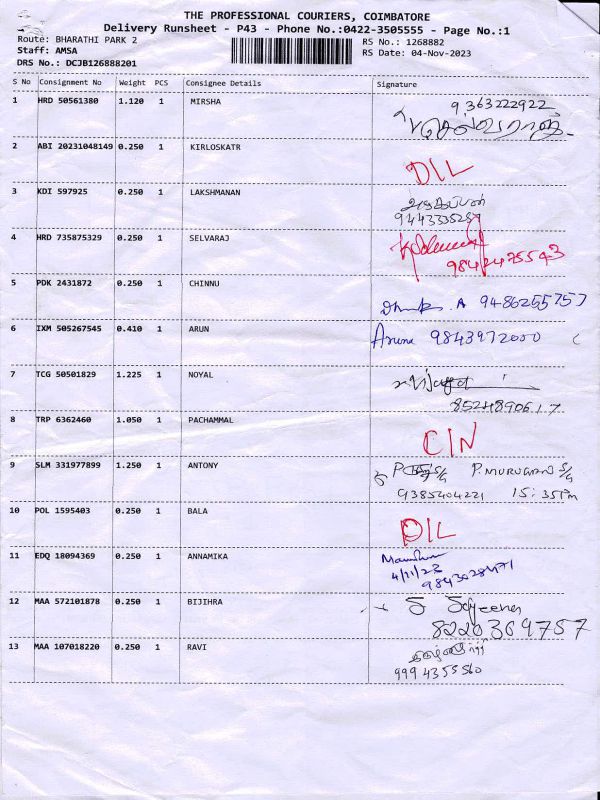 THE PROFESSIONAL COURIERS, COIMBATORE
Delivery Runsheet - P43 - Phone No.:0422-3505555 - Page No.:1
Route: BHARATHI PARK 2 RS No.: 1268882
Staff: AMSA RS Date: 04-Nov-2023
DRS No.: DCJB126888201
S No Consignment No Weight PCS Consignee Details Signature
1 HRD 50561380 1.120 1 MIRSHA 9363222922
செல்வராஜ்
2 ABI 20231048149 0.250 1 KIRLOSKATR
DIL
3 KDI 597925 0.250 1 LAKSHMANAN
4 HRD 735875329 0.250 1 SELVARAJ
5 PDK 2431872 0.250 1 CHINNU
A 9486255757
6 IXM 505267545 0.410 1 ARUN Aruna 9843972000
7 TCG 50501829 1.225 1 NOYAL
8524890617
8 TRP 6362460 1.050 1 PACHAMMAL
CIN
9 SLM 331977899 1.250 1 ANTONY P.MURUGAN S/G
9385404221 15:35Pm
10 POL 1595403 0.250 1 BALA
DIL
11 EDQ 18094369 0.250 1 ANNAMIKA
4/11/23
12 MAA 572101878 0.250 1 BIJIHRA
8220369757
13 MAA 107018220 0.250 1 RAVI
9994355560